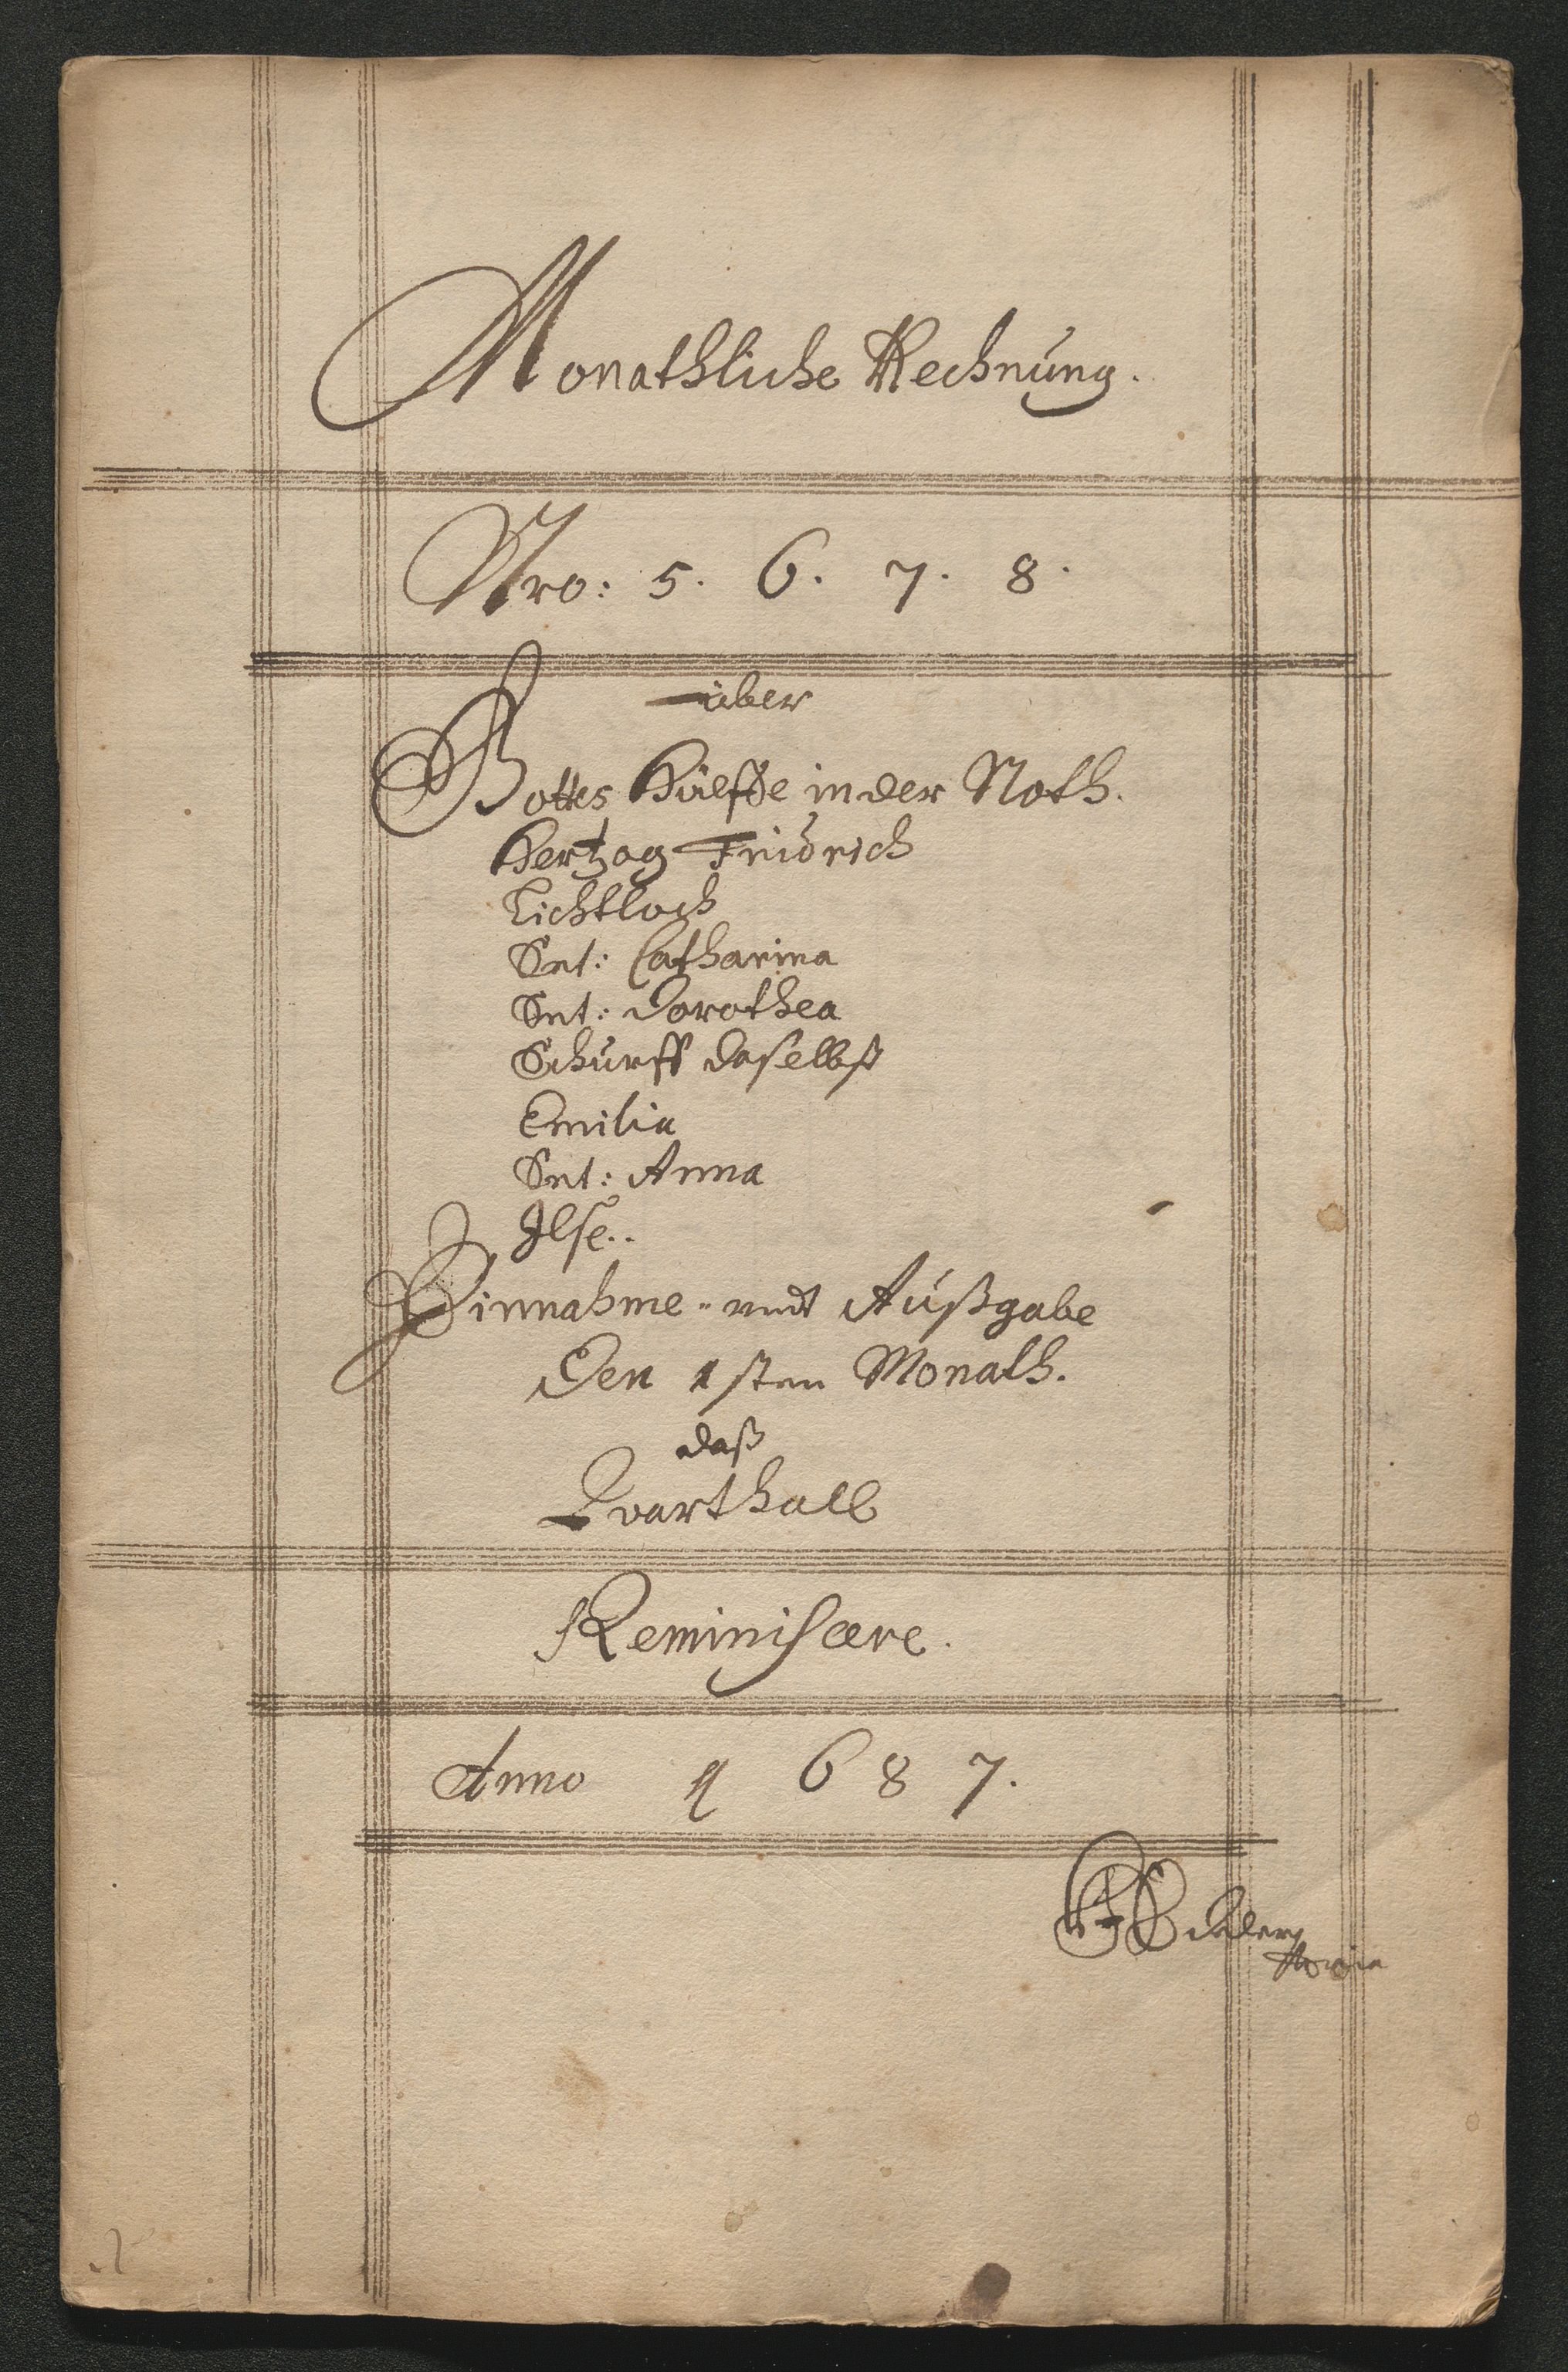 Monathliche Rechnung.
Nro: 5. 6. 7. 8.
über
Gottes Hülffe in der Noth.
Hertzog Fridrich
Lichtloch
Snt: Catharina
Snt: Dorothea
Schurff daselbst
Emilia
Snt: Anna
Ilse..
Einnahme- undt Außgabe
Den 1sten Monath.
daß
Qvarthall
Reminiscere.
Anno 1687.